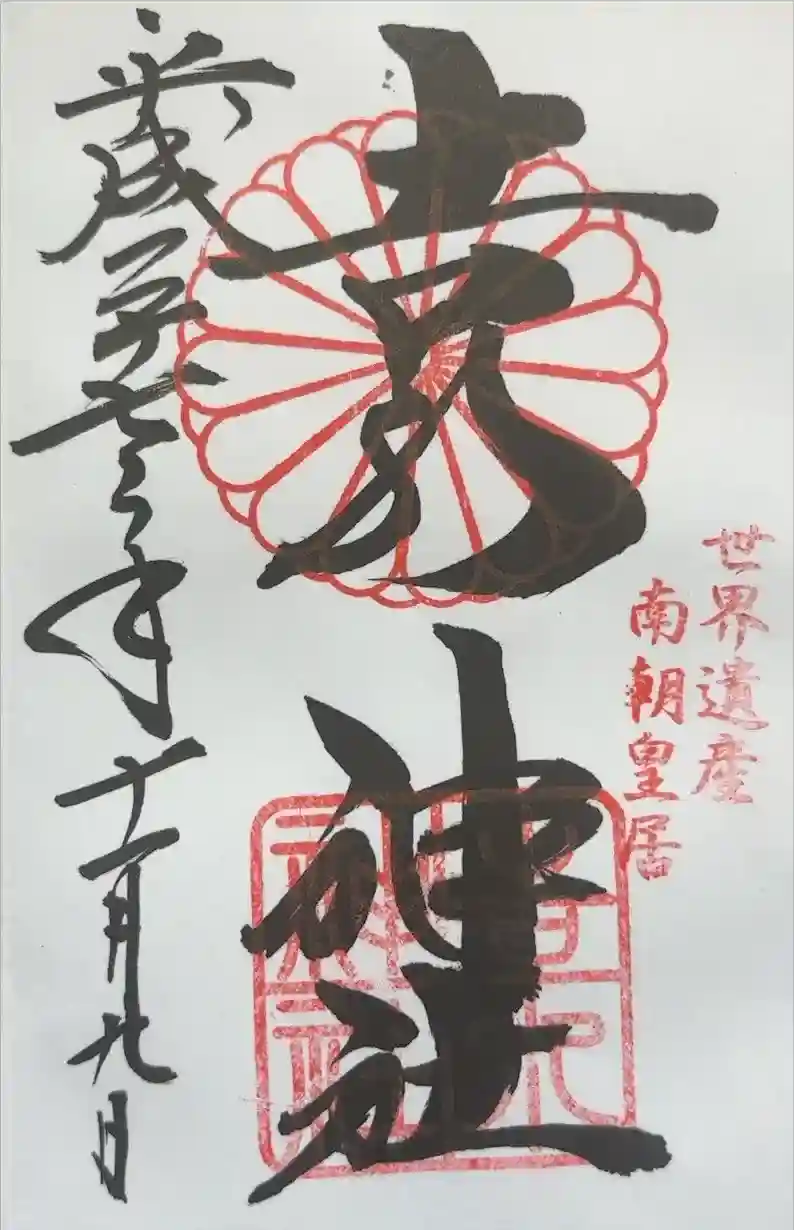 世界遺産
南朝皇居
吉水神社
吉水
神社
平成二十七年十一月九日